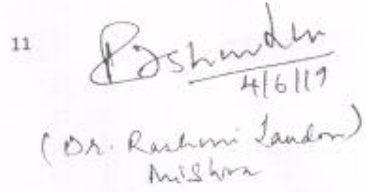 11
4/6/19
(Dr. Rashmi Tandon)
Mishra